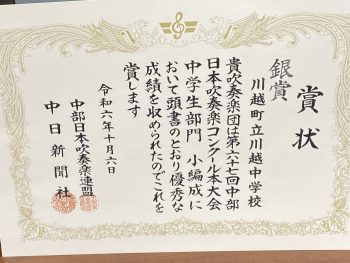 賞状
銀賞
川越町立川越中学校
貴吹奏楽団は第六七回中部
日本吹奏楽コンクール本大会
中学生部門 小編成に
おいて頭書のとおり優秀な
成績を収められたのでこれを
賞します
令和六年十月六日
中部日本吹奏楽連盟
中日新聞社